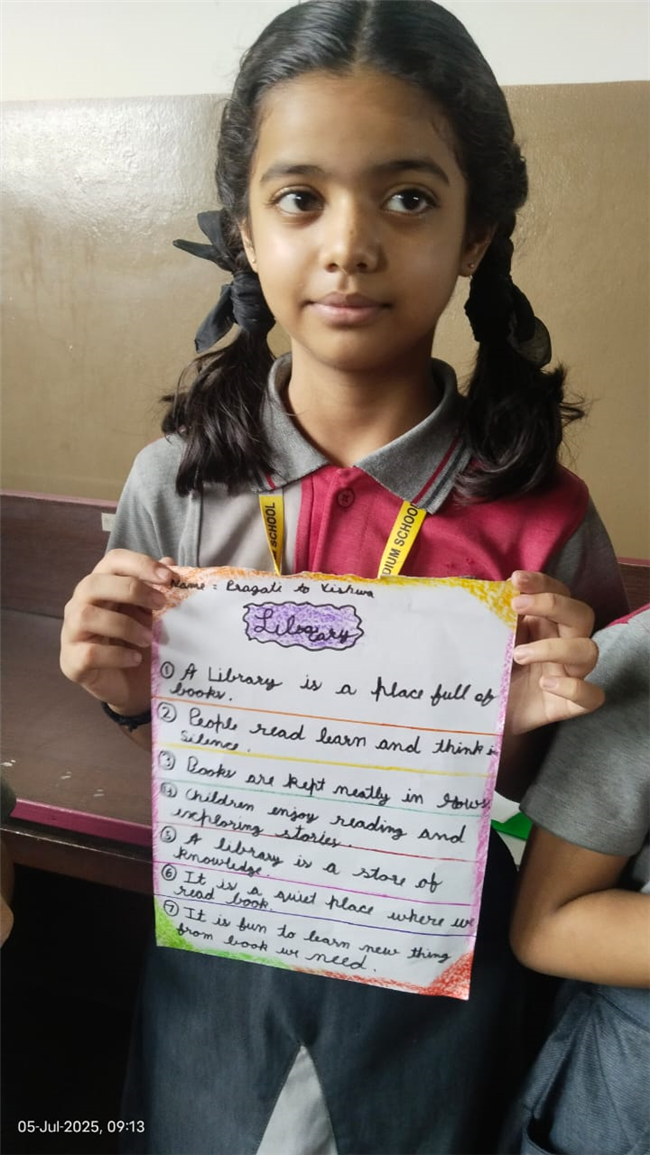 SCHOOL
DIUM SCHOOL
Name = Pragati to Vishwa
Library
① A Library is a place full of
books.
② People read learn and think in
silence.
③ Books are kept neatly in rows
④ Children enjoy reading and
exploring stories.
⑤ A library is a store of
knowledge.
⑥ It is a quiet place where we
read book.
⑦ It is fun to learn new thing
from book we need.
05-Jul-2025, 09:13